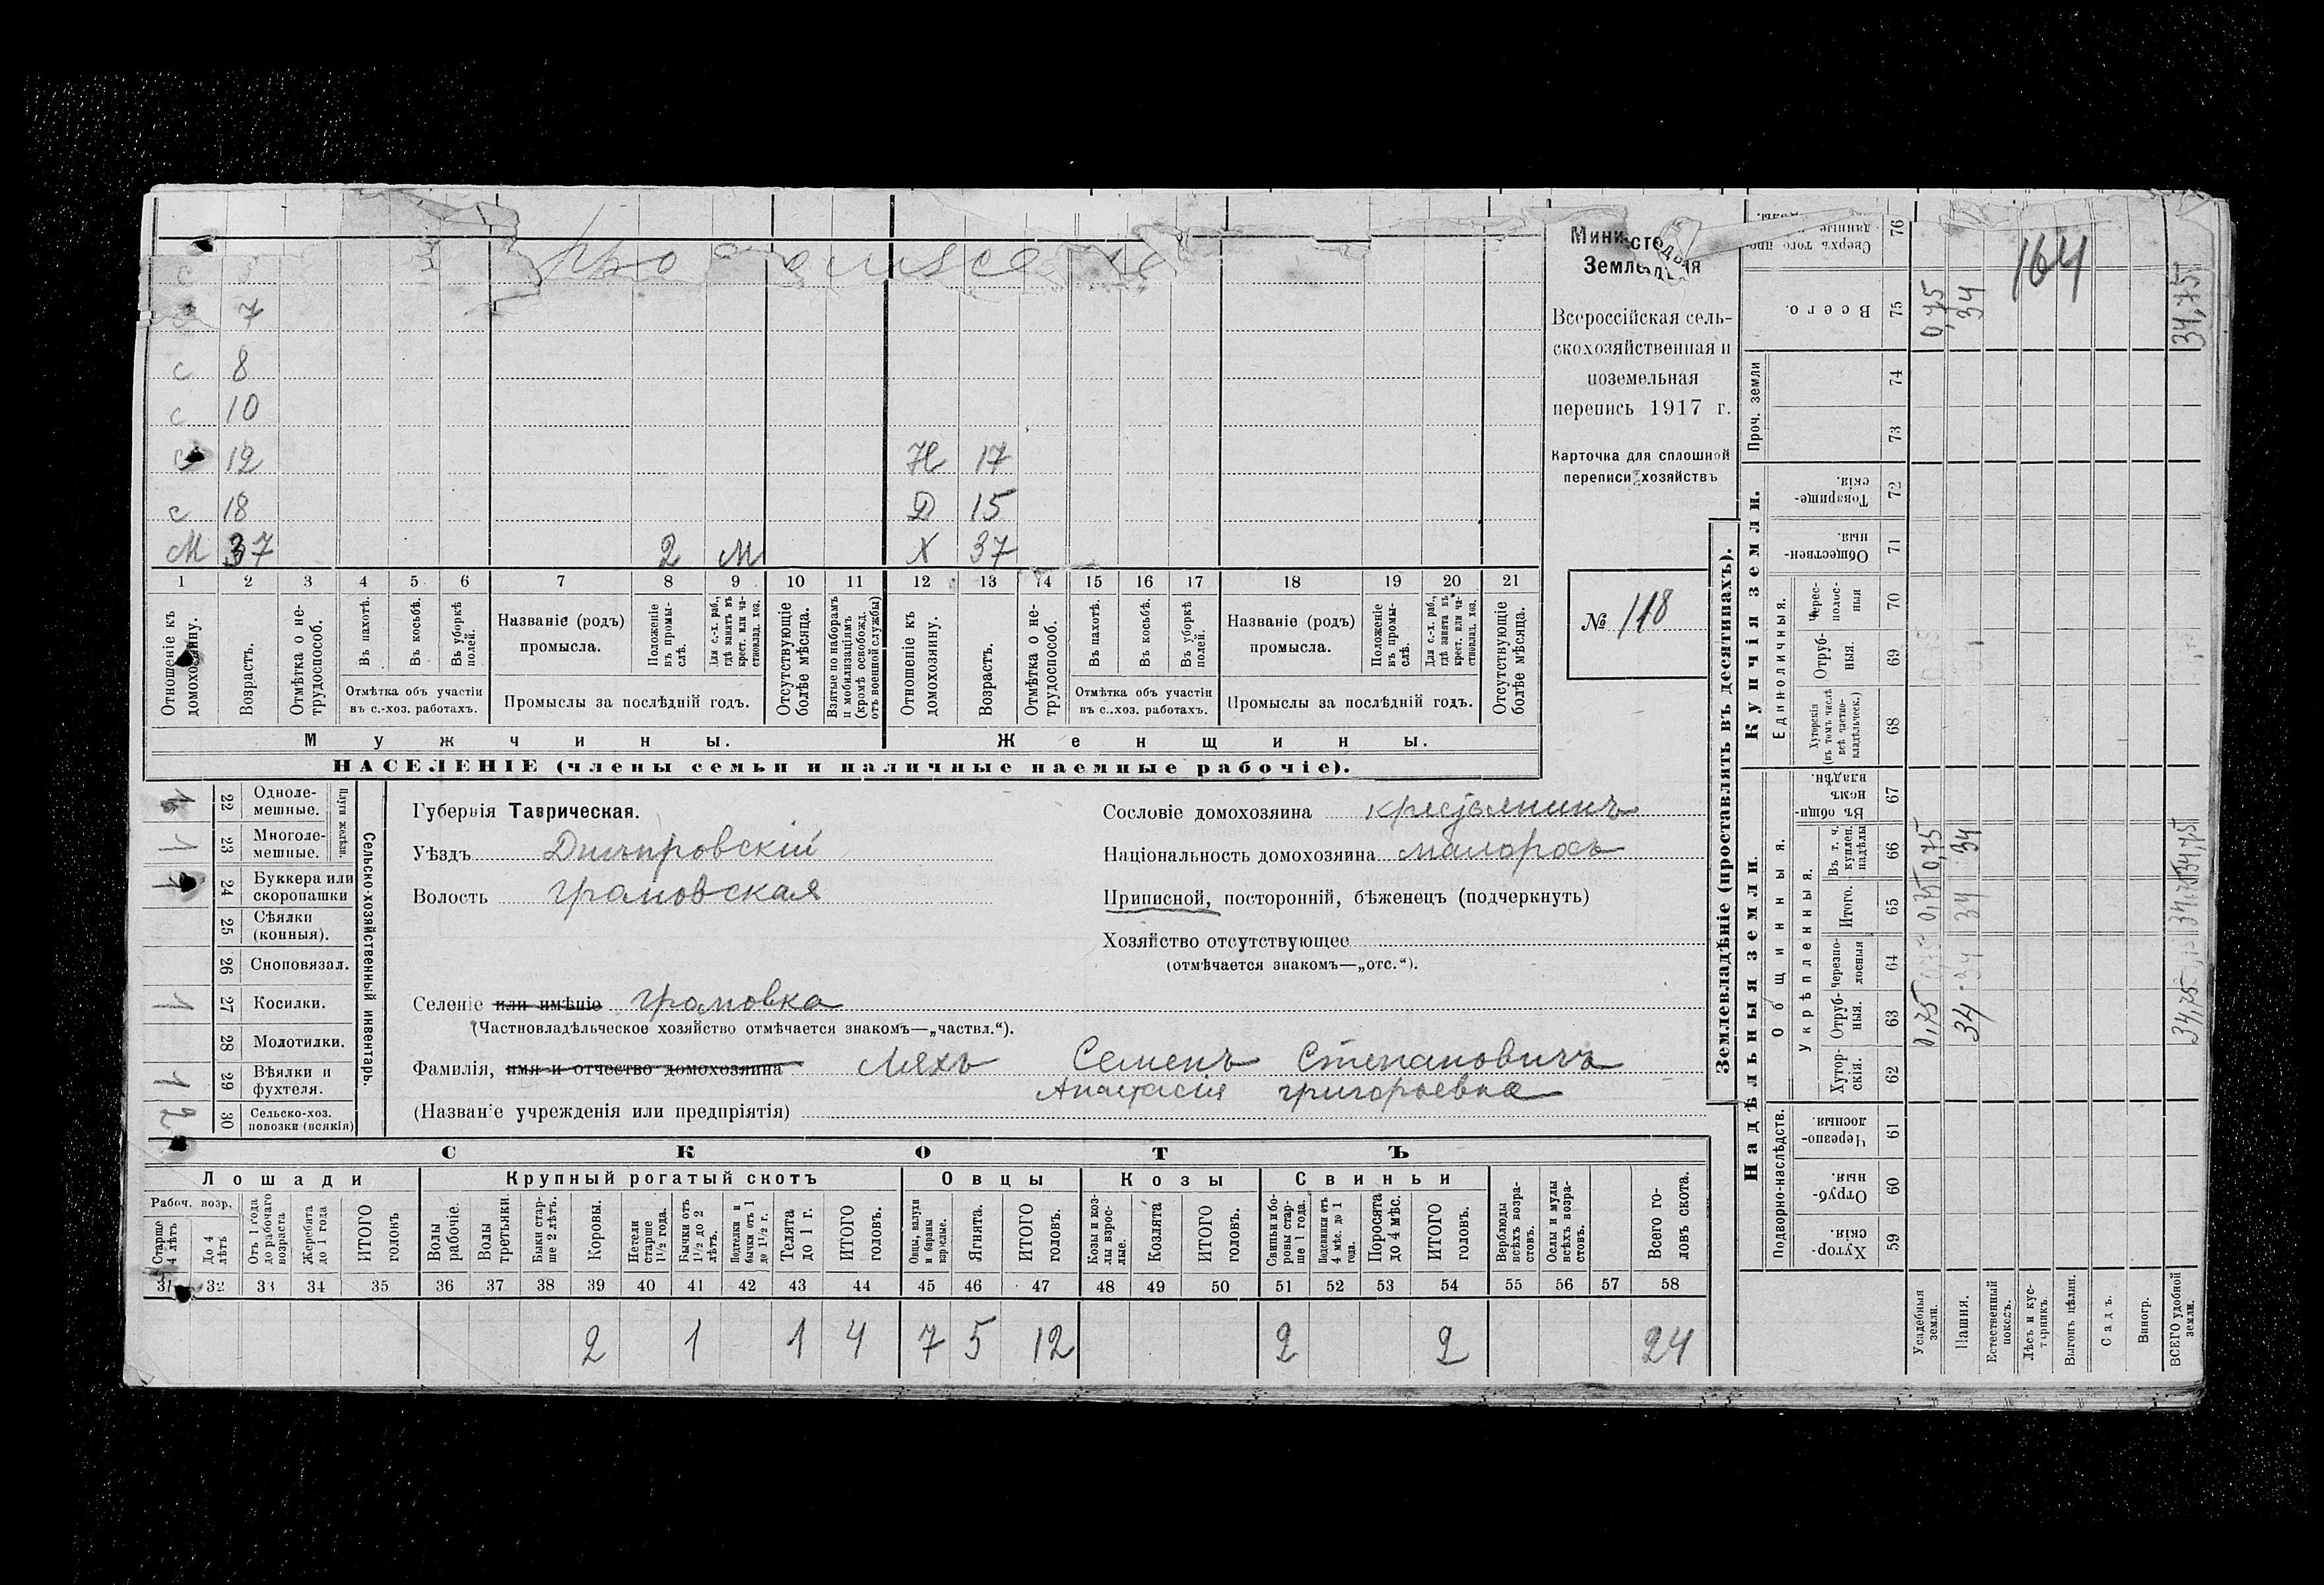 с
7
с 8
с 10
с 12 Н 17
с 18 Д 15
М 37 2 м Х 37
1 2 3 4 5 6 7 8 9 10 11 12 13 14 15 16 17 18 19 20 21
Отношеніе къ домохозяину.
Возрастъ.
Отмѣтка о не-трудоспособ.
Въ пахотѣ.
Въ косьбѣ.
Въ уборкѣ полей.
Отмѣтка объ участіи
въ с.-хоз. работахъ.
Названіе (родъ)
промысла.
Положеніе въ промы-слѣ.
Для с.-х. раб., гдѣ занятъ въ крест. или ча-стновлад. хоз.
Промыслы за послѣдній годъ.
Отсутствующіе болѣе мѣсяца.
Взятые по наборамъ и мобилизаціямъ (кромѣ освобожд. отъ военной службы)
Отношеніе къ домохозяину.
Возрастъ.
Отмѣтка о не-трудоспособ.
Въ пахотѣ.
Въ косьбѣ.
Въ уборкѣ полей.
Отмѣтка объ участіи
въ с..хоз. работахъ.
Названіе (родъ)
промысла.
Положеніе въ промы-слѣ.
Для с.-х. раб., гдѣ занята въ крест. или ча-стновлад. хоз.
Промыслы за послѣдній годъ.
Отсутствующіе болѣе мѣсяца.
Мужчины. Женщины.
НАСЕЛЕНІЕ (члены семьи и наличные наемные рабочіе).
Земледѣлія
Всероссійская сель-
скохозяйственная и
поземельная
перепись 1917 г.
Карточка для сплошной
переписи хозяйствъ
№ 118
Сельско-хозяйственный инвентарь.
Плуги желѣзн.
22 Одноле-мешные.
1 23 Многоле-мешные.
1 24 Буккера или скоропашки
25 Сѣялки (конныя).
26 Сноповязал.
1 27 Косилки.
28 Молотилки.
1 29 Вѣялки и фухтеля.
2 30 Сельско-хоз. повозки (всякія)
Губернія Таврическая.
Уѣздъ Днѣпровскій
Волость Громовская
Селеніе или имѣніе Громовка
(Частновладѣльческое хозяйство отмѣчается знакомъ—„частвл.“).
Фамилія, имя и отчество домохозяина Ляхъ Семенъ Степановичъ
Анастасія Григорьевна
(Названіе учрежденія или предпріятія)
Сословіе домохозяина крестьянинъ
Національность домохозяина малоросъ
Приписной, посторонній, бѣженецъ (подчеркнуть)
Хозяйство отсутствующее
(отмѣчается знакомъ—„отс.“).
СКОТЪ
Лошади Крупный рогатый скотъ Овцы Козы Свиньи
Рабоч. возр.
Старше 4 лѣтъ
До 4 лѣтъ
Отъ 1 года до рабочаго возраста
Жеребята до 1 года
ИТОГО головъ
Волы рабочіе.
Волы третьяки.
Быки стар-ше 2 лѣтъ.
Коровы.
Нетели старше 1½ года.
Бычки отъ 1½ до 2 лѣтъ.
Подтелки и бычки отъ 1 до 1½ г.
Телята до 1 г.
ИТОГО головъ.
Овцы, валухи и бараны взрослые.
Ягнята.
ИТОГО головъ.
Козы и коз-лы взрос-лые.
Козлята
ИТОГО головъ.
Свиньи и бо-ровы стар-ше 1 года.
Подсвинки отъ 4 мѣс. до 1 года.
Поросята до 4 мѣс.
ИТОГО головъ.
Верблюды всѣхъ возра-стовъ.
Ослы и мулы всѣхъ возра-стовъ.
Всего го-ловъ скота.
31 32 33 34 35 36 37 38 39 40 41 42 43 44 45 46 47 48 49 50 51 52 53 54 55 56 57 58
2 1 1 4 7 5 12 2 2 24
Землевладѣніе (проставлять въ десятинахъ).
Надѣльныя земли. Купчія земли.
Подворно-наслѣдств.
Общинныя.
Укрѣпленныя.
Единоличныя.
Проч. земли
59 Хутор-скія.
60 Отруб-ныя.
61 Черезпо-лосныя
62 Хутор-скія.
63 Отруб-ныя.
64 Черезпо-лосныя
65 Итого.
66 Въ т. ч. куплен. надѣлы
67 Въ общи-нномъ владѣн.
68 Хуторскія (въ томъ числѣ всѣ частно-владѣльческ.)
69 Отруб-ныя.
70 Черес-полос-ныя
71 Обществен-ныя.
72 Товарище-скія.
73
74
75 Всего.
76 Сверхъ того
Усадебныя земли. 0,75 0,75 0,75 0,75
Пашня. 34 34 34 34 34
Естественный покосъ.
Лѣсъ и кус-тарникъ.
Выгонъ цѣлин.
Садъ.
Виногр.
ВСЕГО удобной земли. 34,75 34,75 34,75 34,75
164